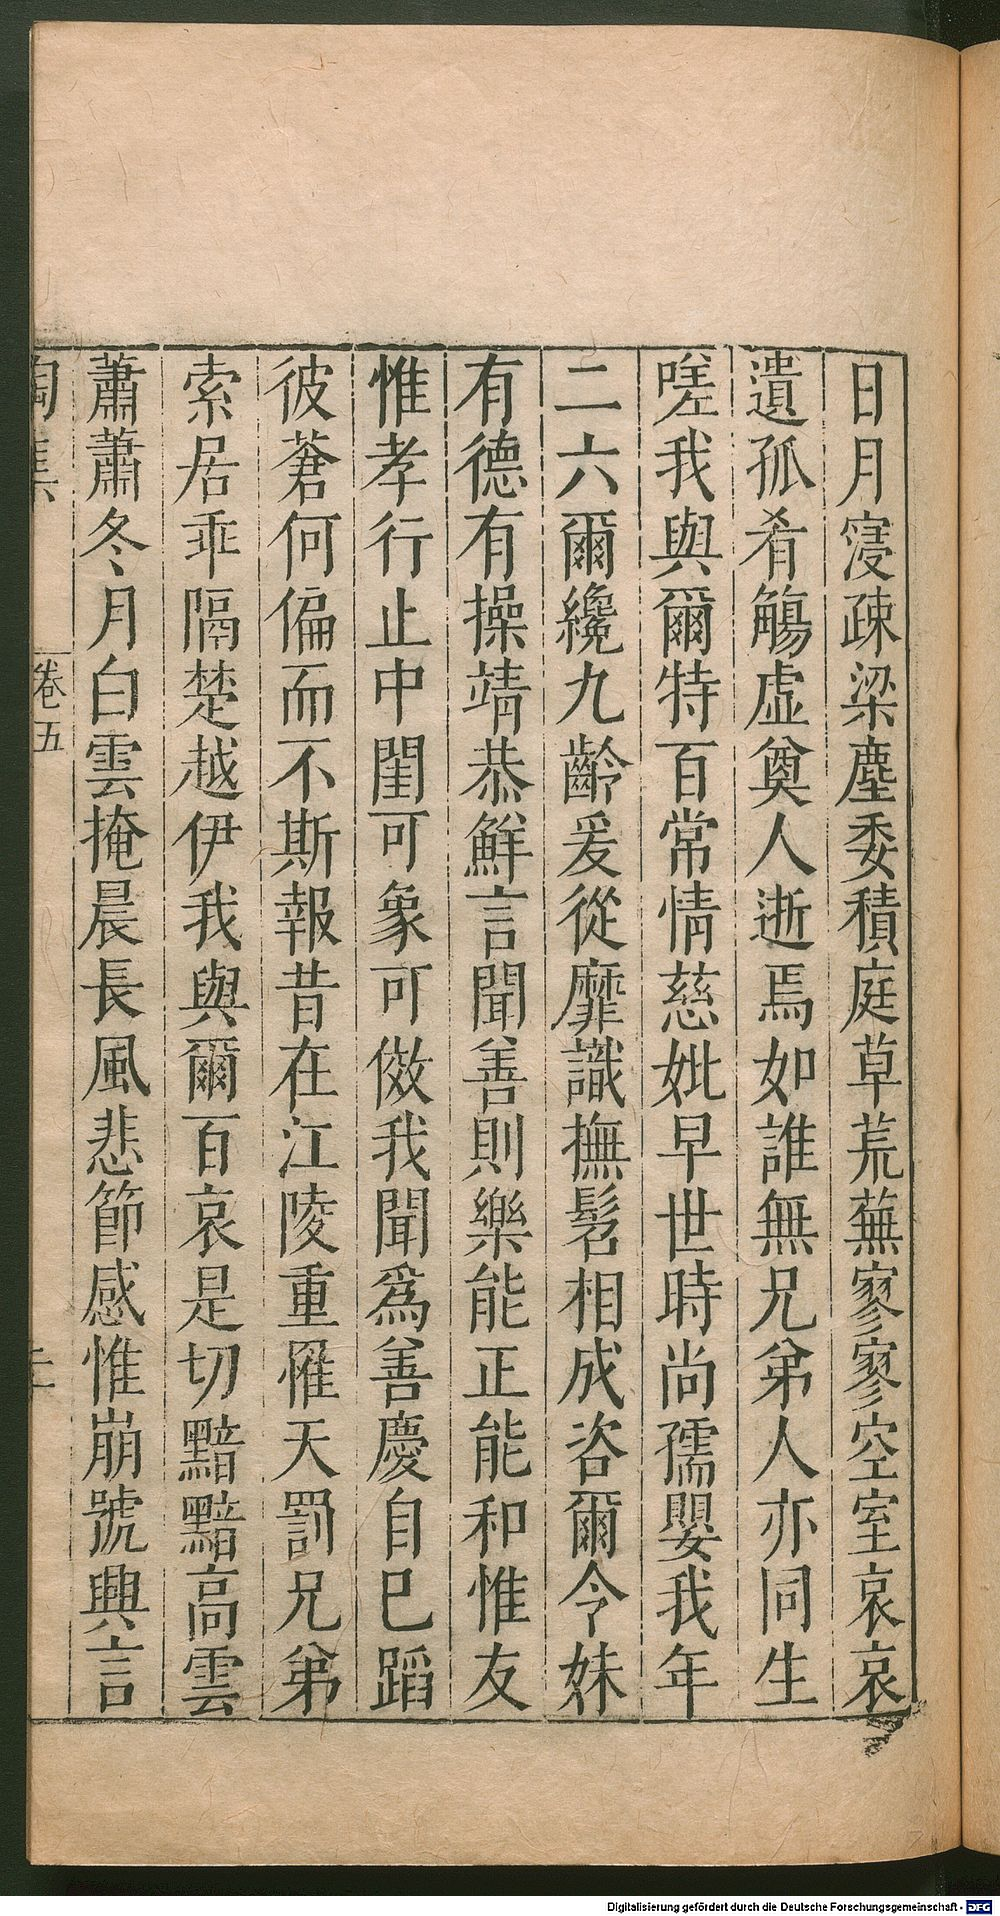 日月寖疎梁塵委積庭草荒蕪寥寥空室哀哀
遺孤肴觴虛奠人逝焉如誰無兄弟人亦同生
嗟我與爾特百常情慈妣早世時尚孺嬰我年
二六爾纔九齡爰從靡識撫髫相成咨爾令妹
有德有操靖恭鮮言聞善則樂能正能和惟友
惟孝行止中閨可象可傚我聞爲善慶自巳蹈
彼蒼何偏而不斯報昔在江陵重罹天罰兄弟
索居乖隔楚越伊我與爾百哀是切黯黯高雲
蕭蕭冬月白雲掩晨長風悲節感惟崩號興言
陶集
卷五
Digitalisierung gefördert durch die Deutsche Forschungsgemeinschaft - DFG